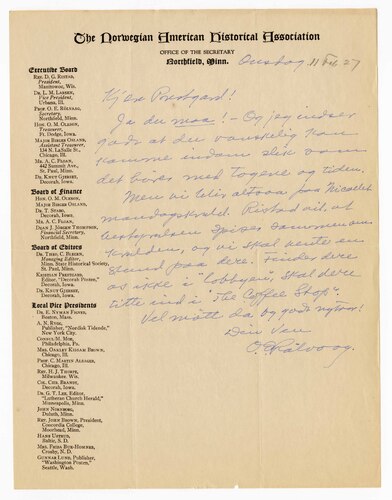 The Norwegian American Historical Association
OFFICE OF THE SECRETARY
Northfield, Minn.
Onsdag 11
Executive Board
REV. D. G. RISTAD,
President,
Manitowoc, Wis.
DR. L. M. LARSEN,
Vice President,
Urbana, Ill.
PROF. O. E. RÖLVAAG,
Secretary,
Northfield, Minn.
HON. O. M. OLESON,
Treasurer,
Ft. Dodge, Iowa.
MAJOR BIRGER OSLAND,
Assistant Treasurer,
134 N. LaSalle St.,
Chicago, Ill.
MR. A. C. FLOAN,
St. Paul, Minn.
DR. KNUT GJERSET,
Decorah, Iowa.
Board of Finance
HON. O. M. OLESON,
MAJOR BIRGER OSLAND,
DR. T. STABO,
Decorah, Iowa.
MR. A. C. FLOAN,
DEAN J. JÖRGEN THOMPSON,
Financial Secretary,
Northfield, Minn.
Board of Editors
DR. THEO. C. BLEGEN,
Managing Editor,
Minn. State Historical Society,
St. Paul, Minn.
KRISTIAN PRESTGARD,
Editor, "Decorah Posten,"
Decorah, Iowa.
DR. KNUT GJERSET,
Decorah, Iowa.
Local Vice Presidents
Boston, Mass.
A. N. RYGG,
Publisher, "Nordisk Tidende,"
New York City.
CONSUL M. MOE,
Philadelphia, Pa.
Chicago, Ill.
Chicago, Ill.
REV. H. J. THORPE,
Milwaukee, Wis.
COL. CHR. BRANDT,
Decorah, Iowa.
DR. G. T. LEE, Editor,
"Lutheran Church Herald,"
Minneapolis, Minn.
JOHN NORBORG,
Duluth, Minn.
REV. JOHN BROWN, President,
Concordia College,
Moorhead, Minn.
HANS USTRUD,
Baltic, S. D.
Crosby, N. D.
GUNNAR LUND, Publisher,
"Washington Posten,"
Seattle, Wash.
Kjære Prestgard!
Ja du maa! – Og jeg indser
godt at du vanskelig kan
komme indom slik som
det bæres med togene og tiden.
Men vi blir altsaa paa Nicollet
mandagskveld. Ristad vil, at
bestyrelsen spiser sammen om
kvelden, og vi skal vente en
stund paa dere. Finder dere
os ikke i "Lobbyen", skal dere
titte ind i "The Coffee Shop".
Vel møtt da og godt nytaar!
Din Ven
O. E. Rølvaag.